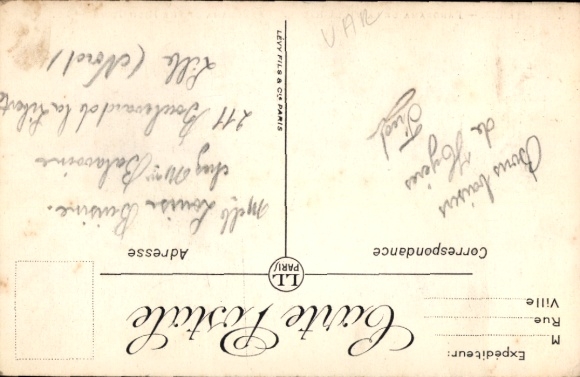 Expéditeur:
M
Rue
Ville
Carte Postale
LL
PARIS
Correspondance
Adresse
Bons baisers
de Hyères
Fred
Melle Louise Buisine.
chez Mme Balavoine
211 Boulevard de la Liberté
Lille (Nord)
LÉVY FILS & Cie PARIS
VAR